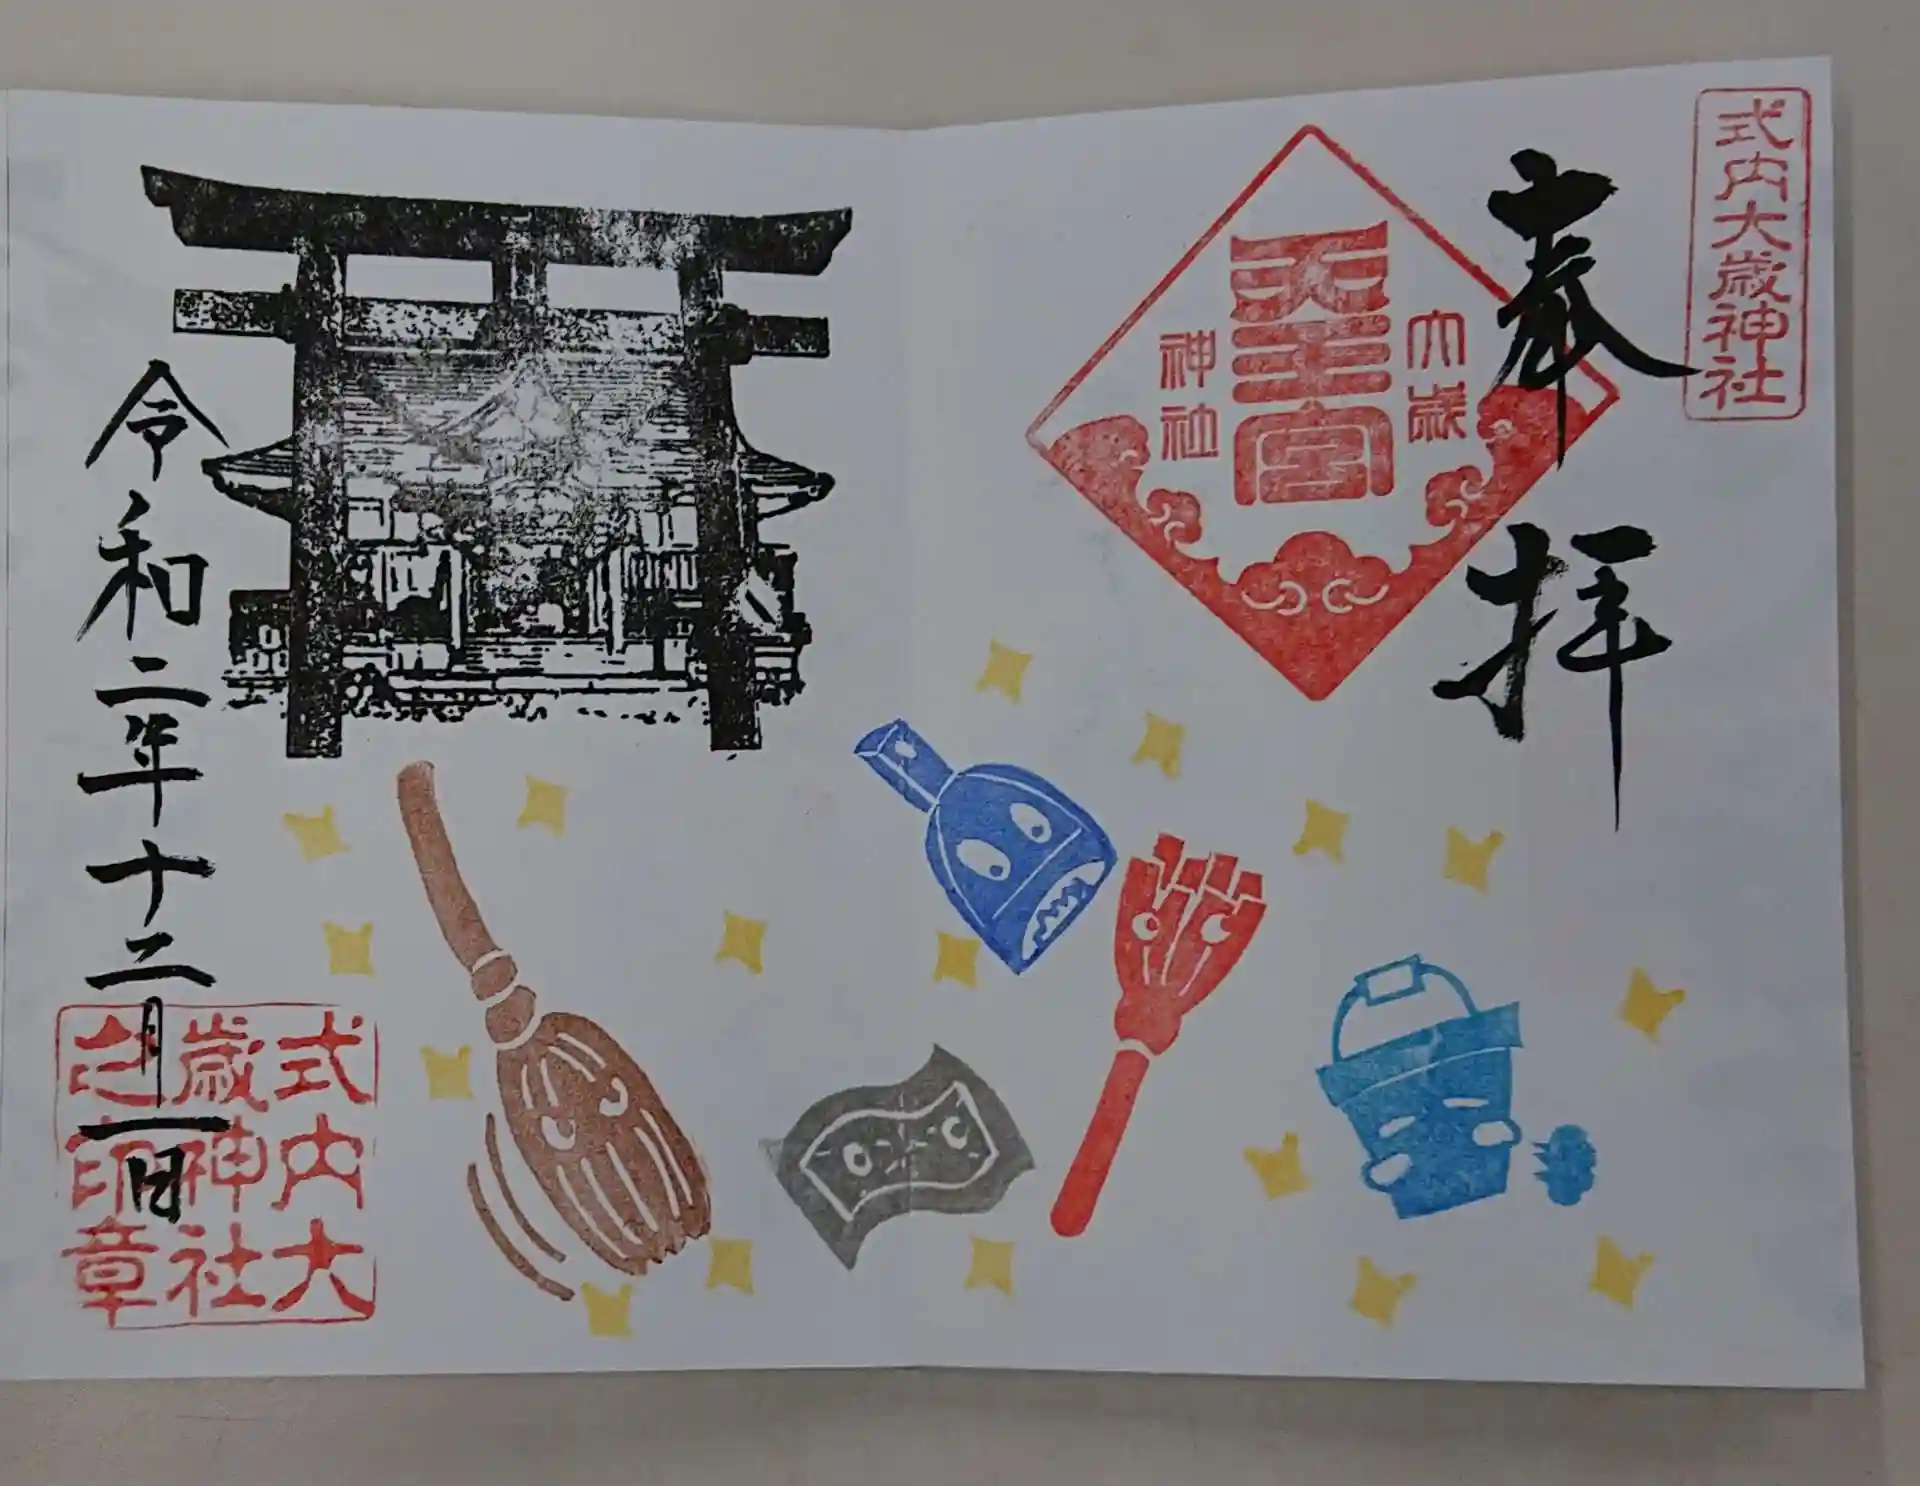 式内大歳神社
奉拝
大歳
天王宮
神社
式内大
歳神社
之印章
令和二年十二月一日